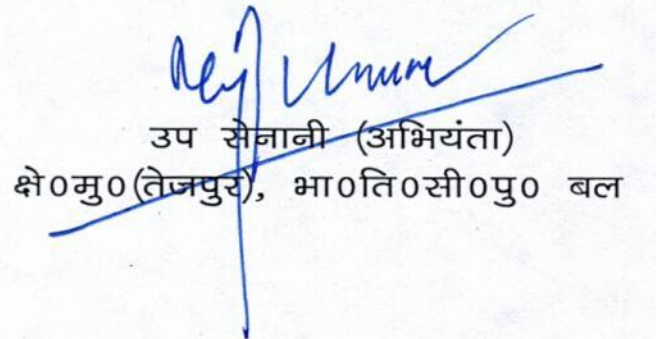 उप सेनानी (अभियंता)
क्षे०मु०(तेजपुर), भा०ति०सी०पु० बल